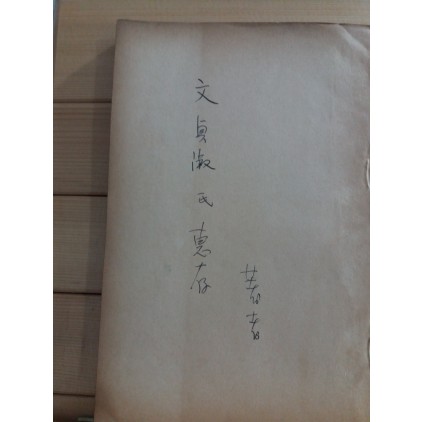 文貞淑氏惠存
著者